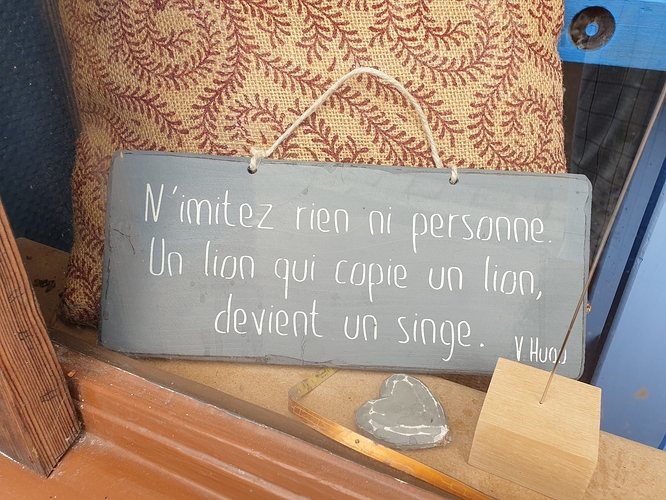 N'imitez rien ni personne.
Un lion qui copie un lion,
devient un singe.
V. Hugo